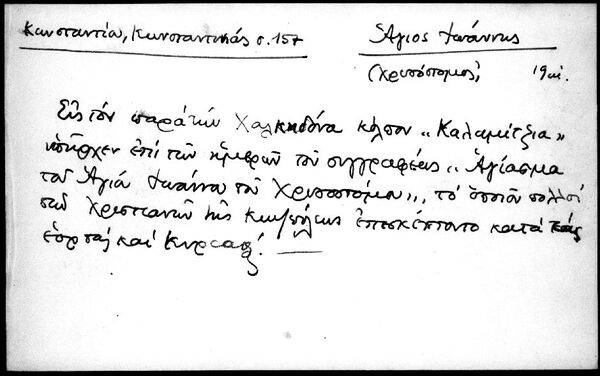 Κωνσταντία, Κωνσταντινιάς σ. 157
Ἅγιος Ἰωάννης
(Χρυσόστομος) 19 αἰ.
Εἰς τόν παρά τήν Χαλκηδόνα κόλπον „Καλαμίτζια„
ὑπῆρχεν ἐπί τῶν ἡμερῶν τοῦ συγγραφέως „Ἁγίασμα
τοῦ Ἁγίου Ἰωάννου τοῦ Χρυσοστόμου„, τό ὁποῖον πολλοί
τῶν Χριστιανῶν τῆς Κων/πόλεως ἐπεσκέπτοντο κατά τάς
ἑορτάς καί Κυριακάς.